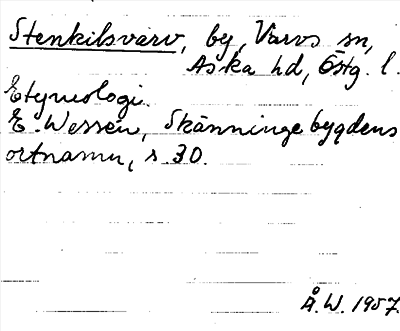 Stenkilsvarv, by, Varvs sn,
Aska hd, Östg. l.
Etymologi.
E. Wessén, Skänningebygdens
ortnamn, s. 30.
Å. W. 1957.